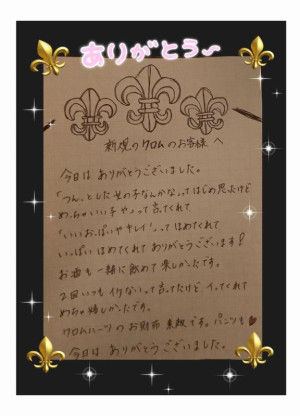 ありがとう～
新規のクロムのお客様へ
今日は ありがとうございました。
「つん」とした女の子なんかなってはじめ思ったけど
めっちゃいい子やって言ってくれて
「いいおっぱいやキレイ」ってほめてくれて
いっぱい ほめてくれて ありがとうございます!
お酒も一緒に飲めて 楽しかったです。
2回いつもイけないって言ってたけど、イってくれて
めちゃ嬉しかったです。
クロムハーツの お財布 素敵です。パンツも
今日は ありがとうございました。